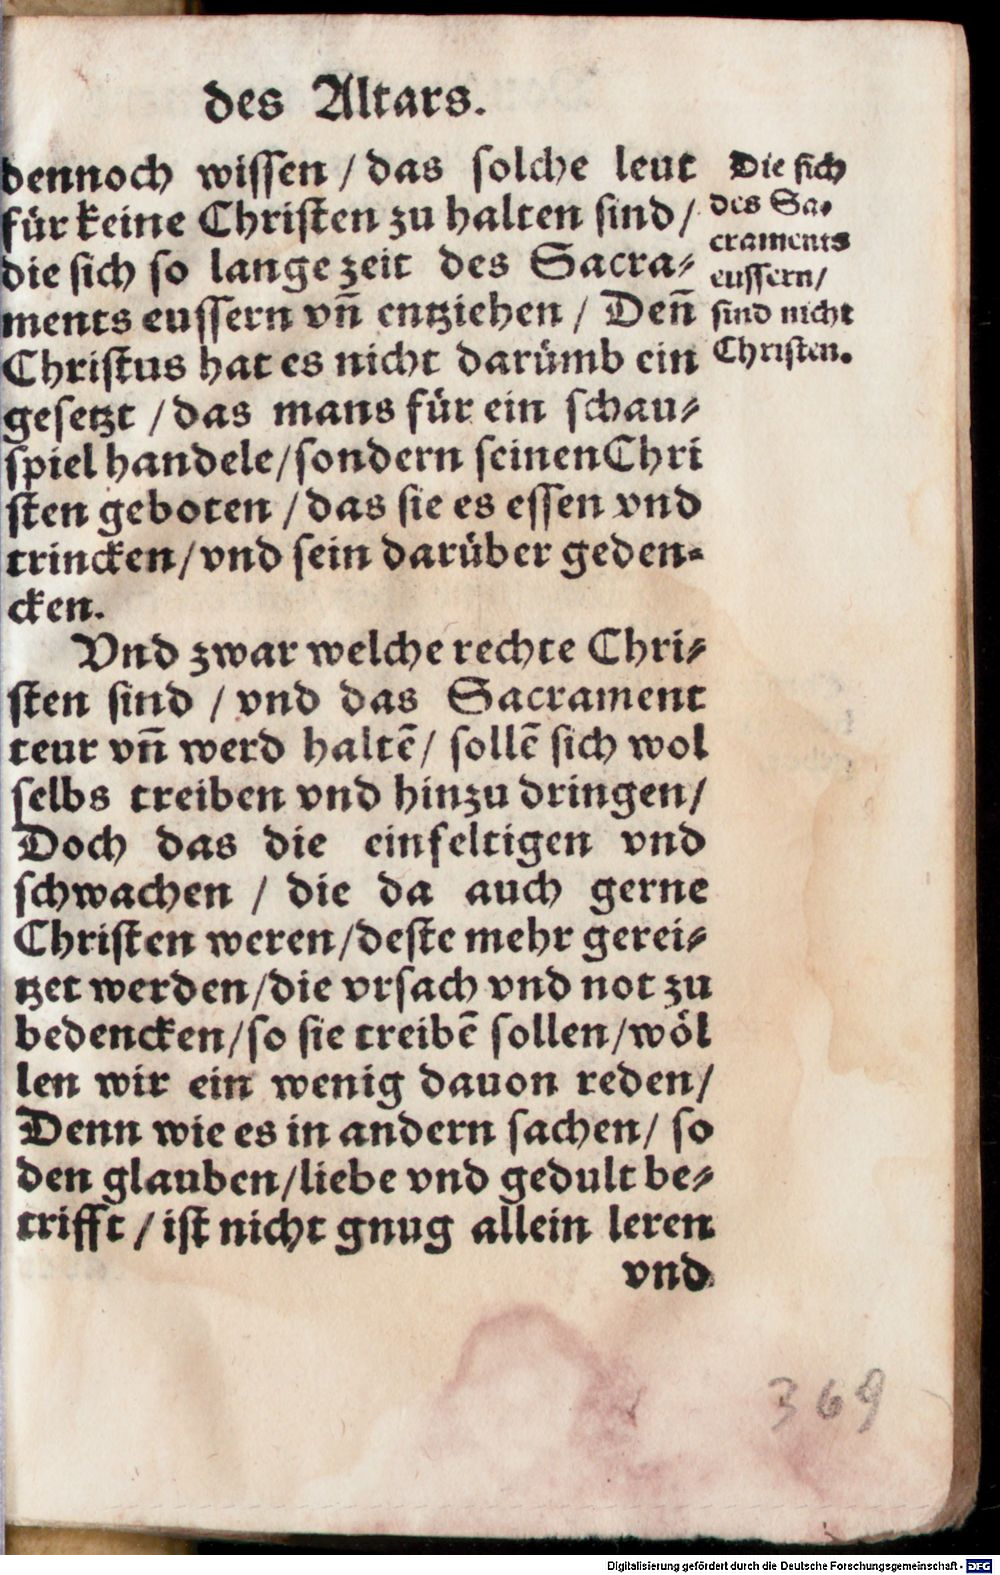 des Altars.
dennoch wissen / das solche leut
für keine Christen zu halten sind /
die sich so lange zeit des Sacra⸗
ments eussern vñ entziehen / Deñ
Christus hat es nicht darümb ein
gesetzt / das mans für ein schau⸗
spiel handele / sondern seinen Chri
sten geboten / das sie es essen vnd
trincken / vnd sein darüber geden⸗
cken.
Vnd zwar welche rechte Chri⸗
sten sind / vnd das Sacrament
teur vñ werd haltē / sollē sich wol
selbs treiben vnd hinzu dringen /
Doch das die einfeltigen vnd
schwachen / die da auch gerne
Christen weren / deste mehr gerei⸗
tzet werden / die vrsach vnd not zu
bedencken / so sie treibē sollen / wöl
len wir ein wenig dauon reden /
Denn wie es in andern sachen / so
den glauben / liebe vnd gedult be⸗
trifft / ist nicht gnug allein leren
vnd
Die sich
des Sa⸗
craments
eussern /
sind nicht
Christen.
369
Digitalisierung gefördert durch die Deutsche Forschungsgemeinschaft - DFG